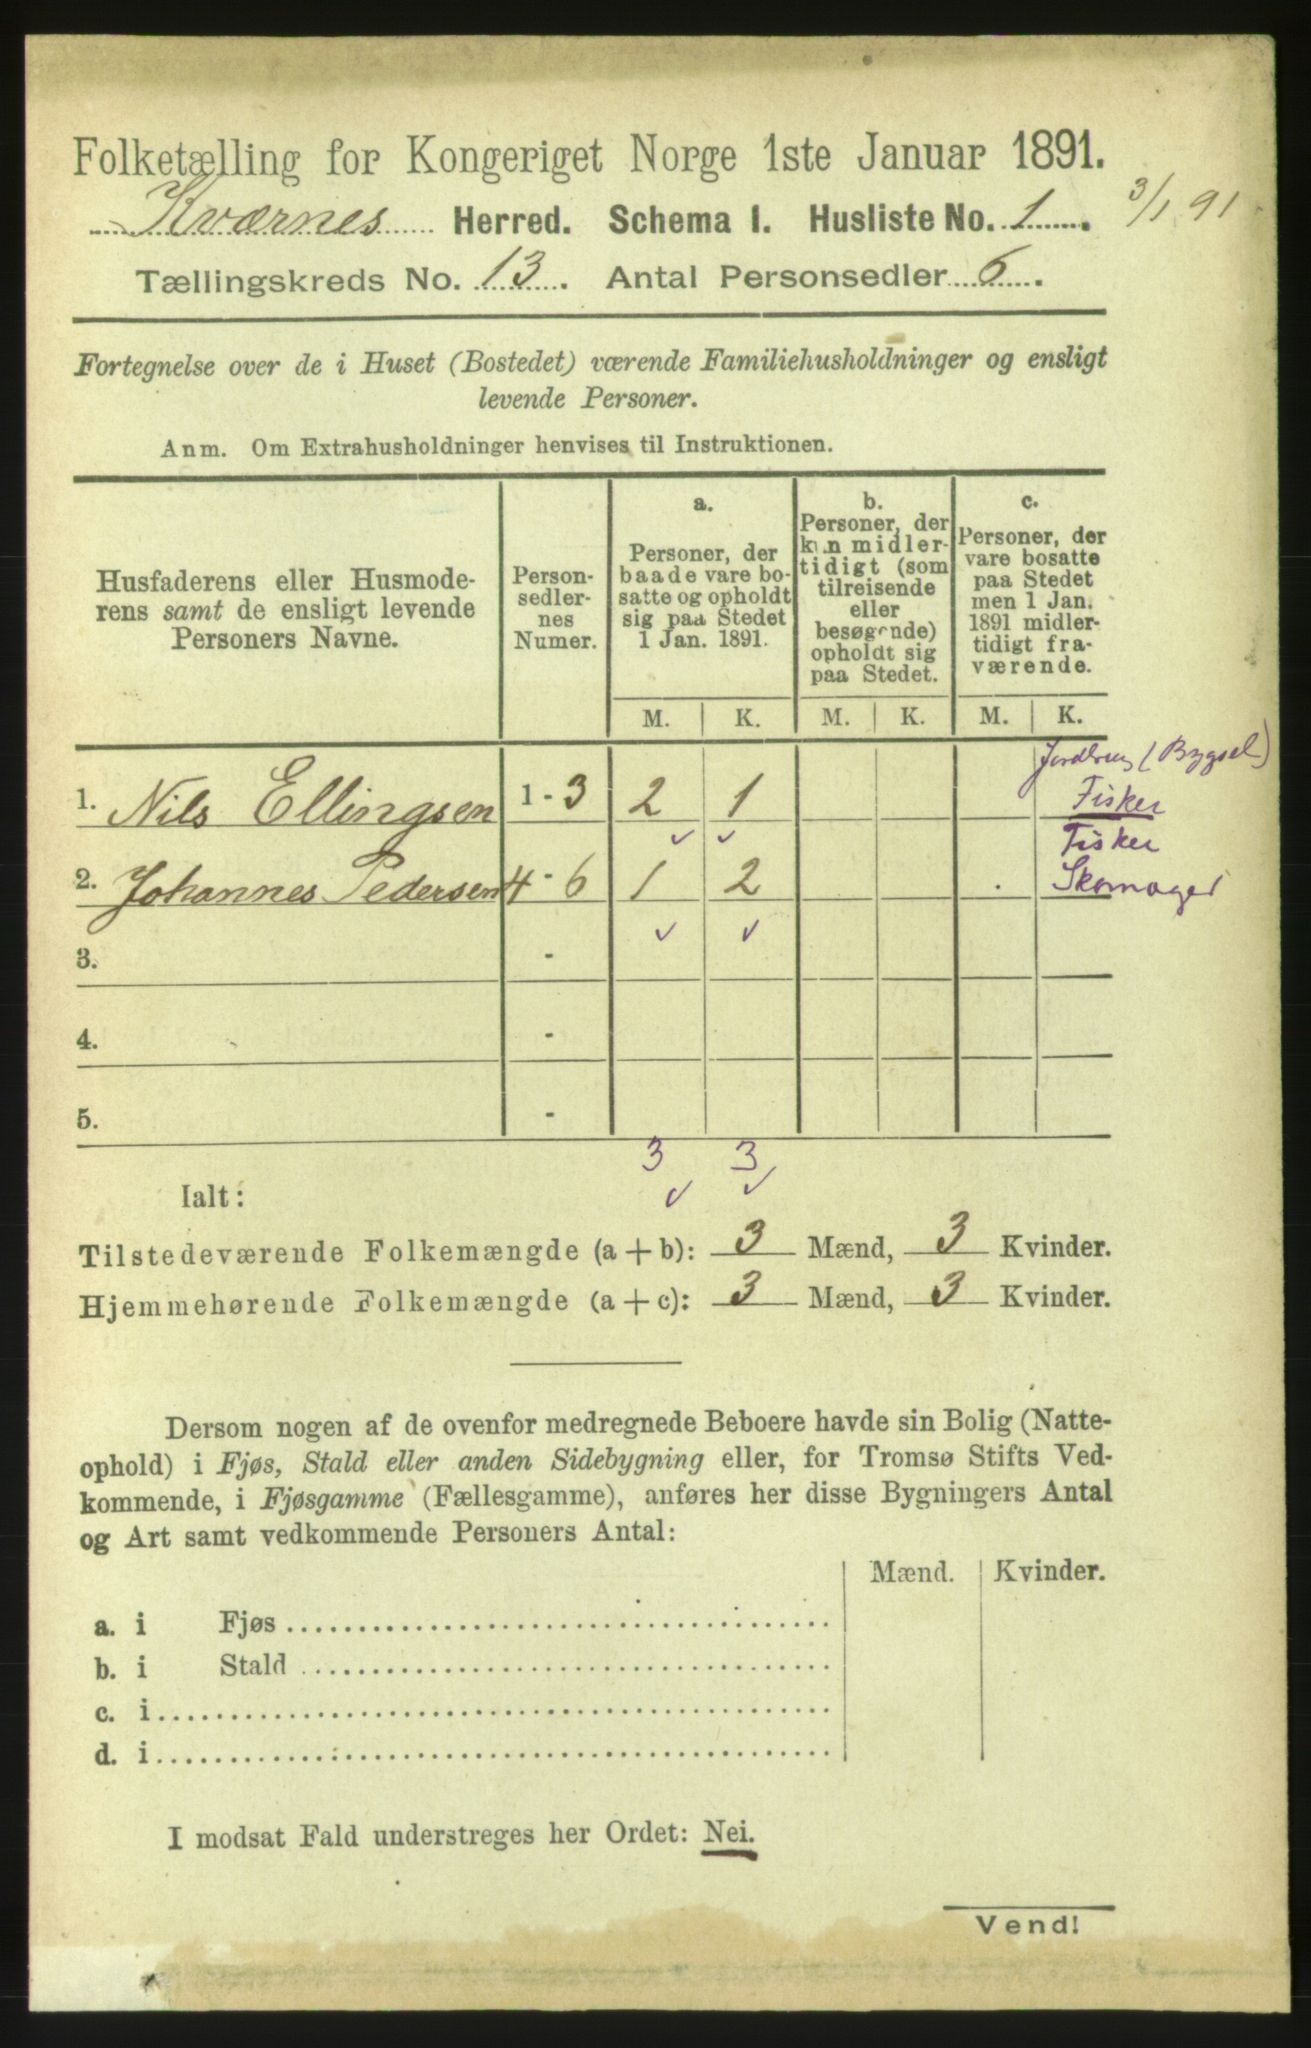 Folketælling for Kongeriget Norge 1ste Januar 1891.
Kværnes Herred. Schema I. Husliste No. 1. 3/1 91
Tællingskreds No. 13. Antal Personsedler 6.
Fortegnelse over de i Huset (Bostedet) værende Familiehusholdninger og ensligt
levende Personer.
Anm. Om Extrahusholdninger henvises til Instruktionen.
Husfaderens eller Husmode-
rens samt de ensligt levende
Personers Navne.
Person-
sedler-
nes
Numer.
a.
Personer, der
baade vare bo-
satte og opholdt
sig paa Stedet
1 Jan. 1891.
b.
Personer, der
kun midler-
tidigt (som
tilreisende
eller
besøgende)
opholdt sig
paa Stedet.
c.
Personer, der
vare bosatte
paa Stedet
men 1 Jan.
1891 midler-
tidigt fra-
værende.
M. K. M. K. M. K.
(Bygsel)
1. Nils Ellingsen 1 - 3 2 1 Fisker
✓ ✓ Fisker
2. Johannes Pedersen 4 - 6 1 2 . Skomager
✓ ✓
3. -
4. -
5. -
3 3
Ialt: ✓ ✓
Tilstedeværende Folkemængde (a + b): 3 Mænd, 3 Kvinder.
Hjemmehørende Folkemængde (a + c): 3 Mænd, 3 Kvinder.
Dersom nogen af de ovenfor medregnede Beboere havde sin Bolig (Natte-
ophold) i Fjøs, Stald eller anden Sidebygning eller, for Tromsø Stifts Ved-
kommende, i Fjøsgamme (Fællesgamme), anføres her disse Bygningers Antal
og Art samt vedkommende Personers Antal:
Mænd. Kvinder.
a. i Fjøs
b. i Stald
c. i
d. i
I modsat Fald understreges her Ordet: Nei.
Vend!